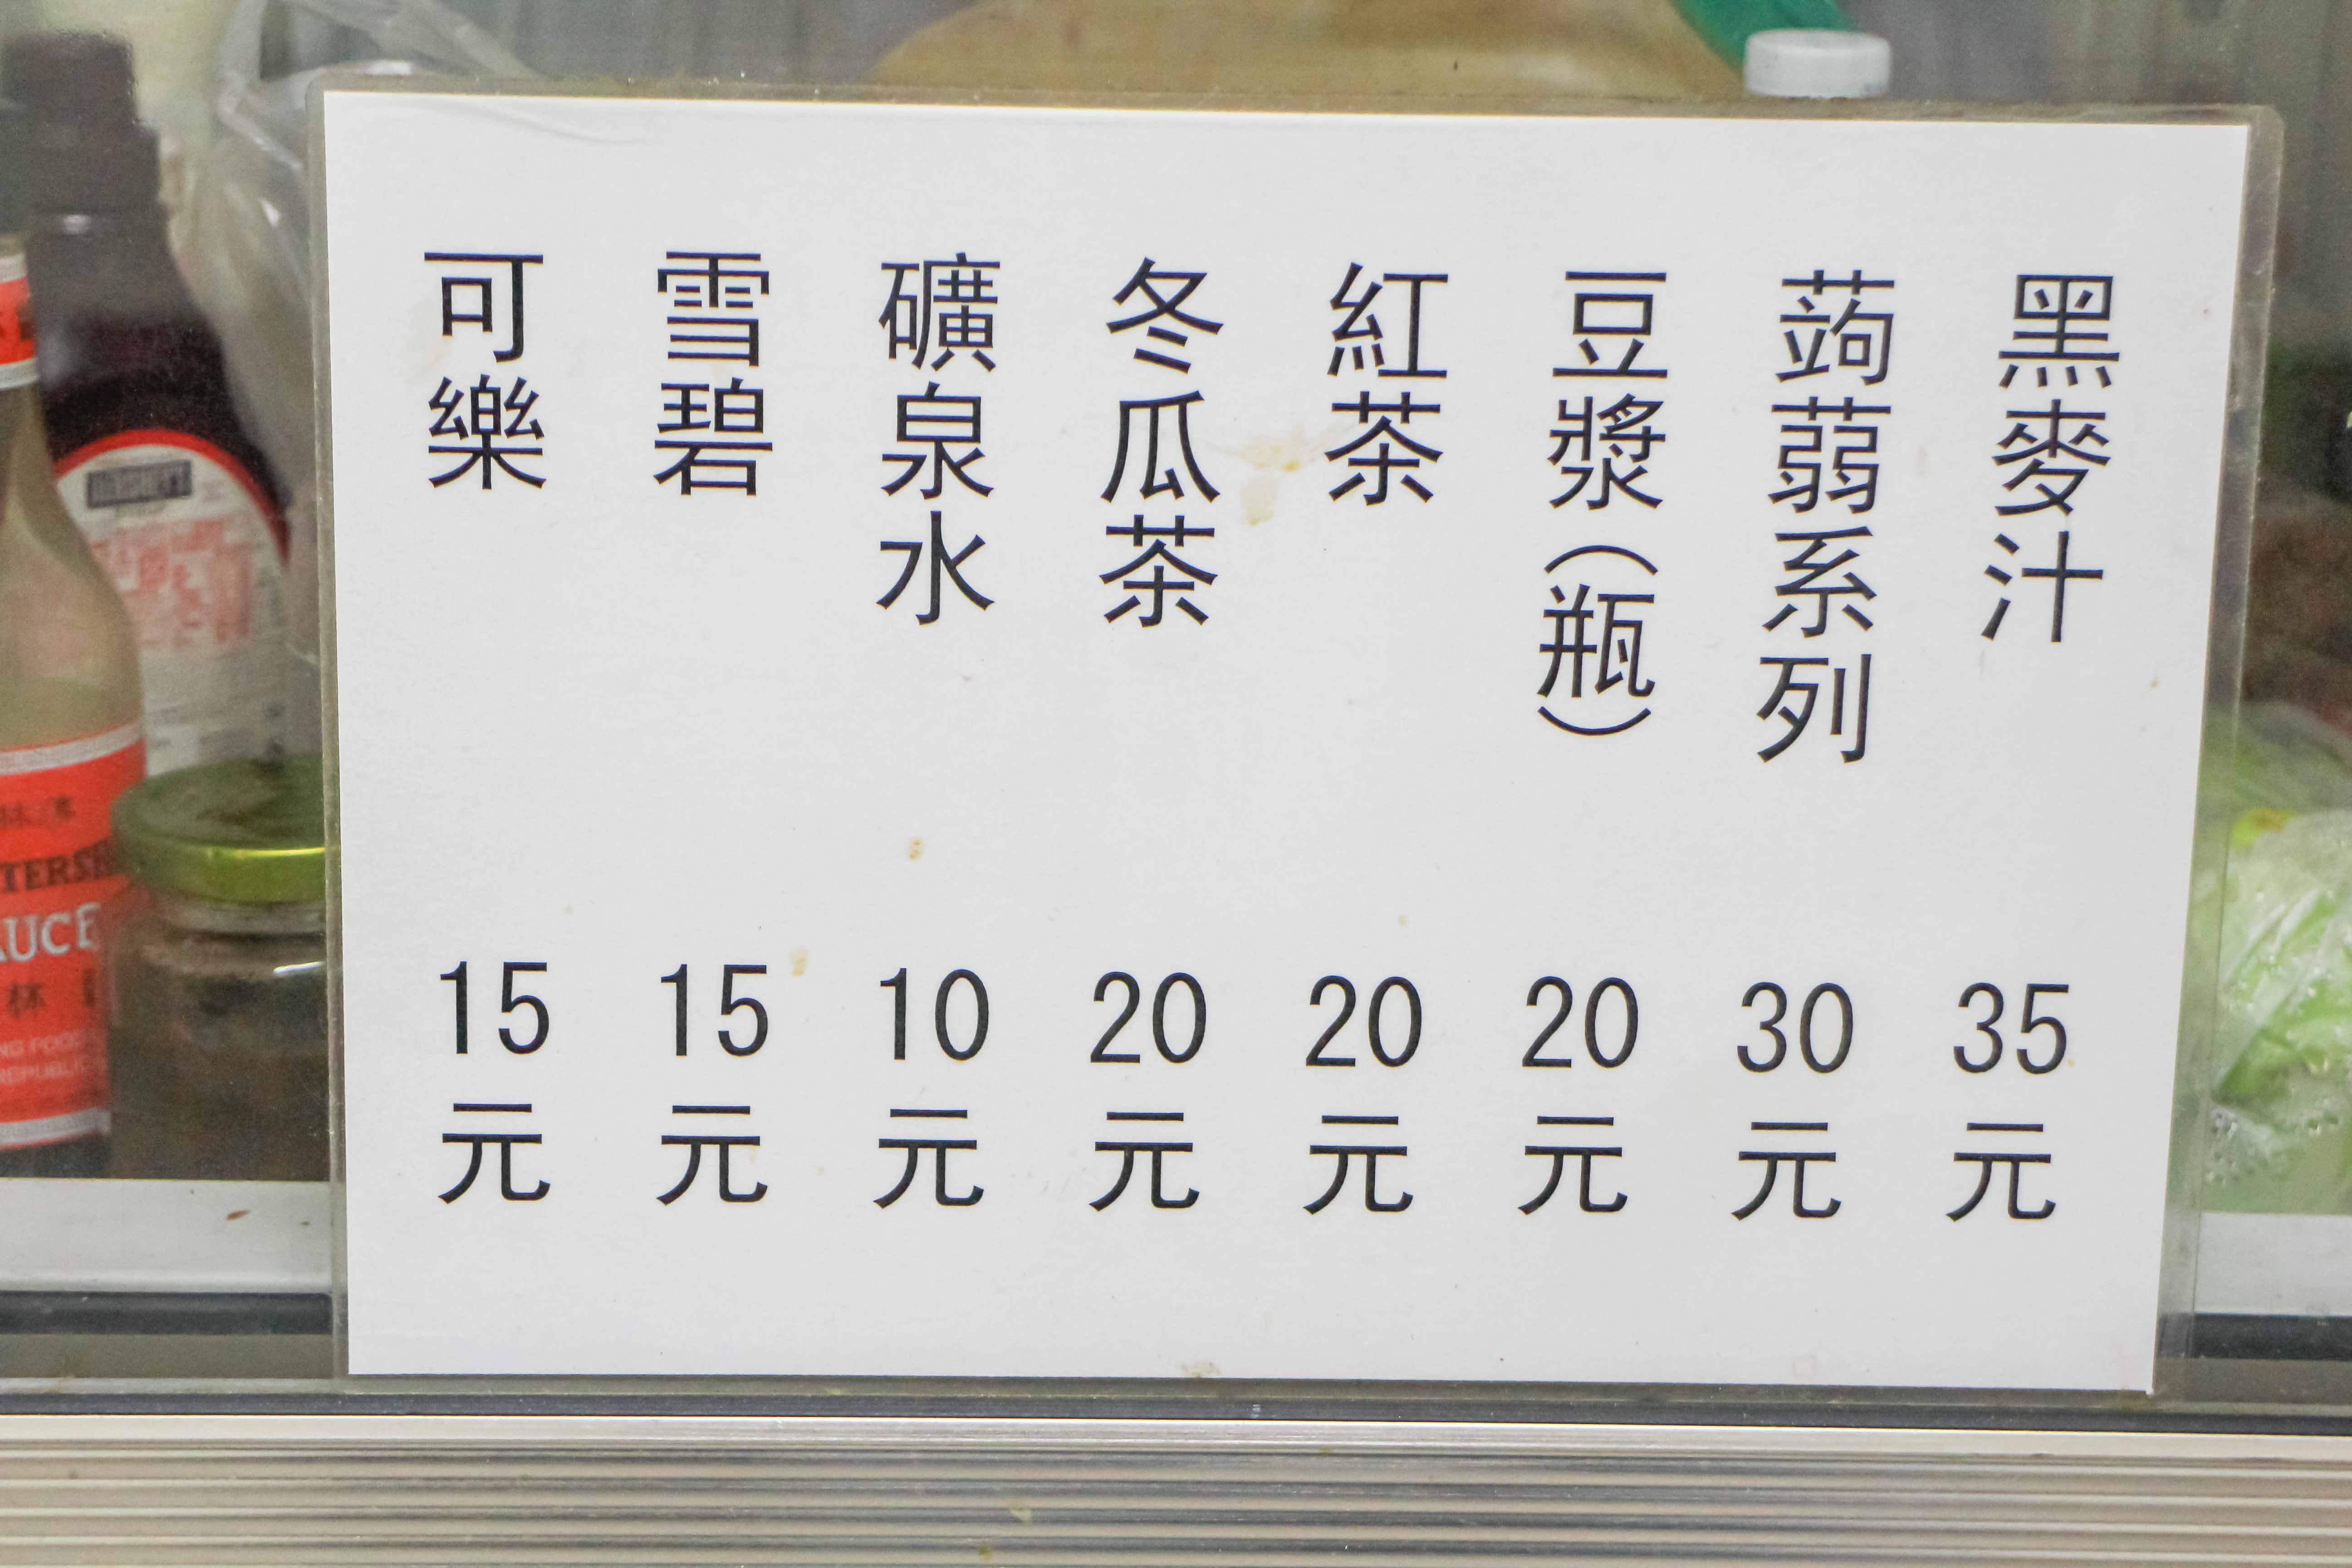 黑麥汁 35元
蒟蒻系列 30元
豆漿(瓶) 20元
紅茶 20元
冬瓜茶 20元
礦泉水 10元
雪碧 15元
可樂 15元